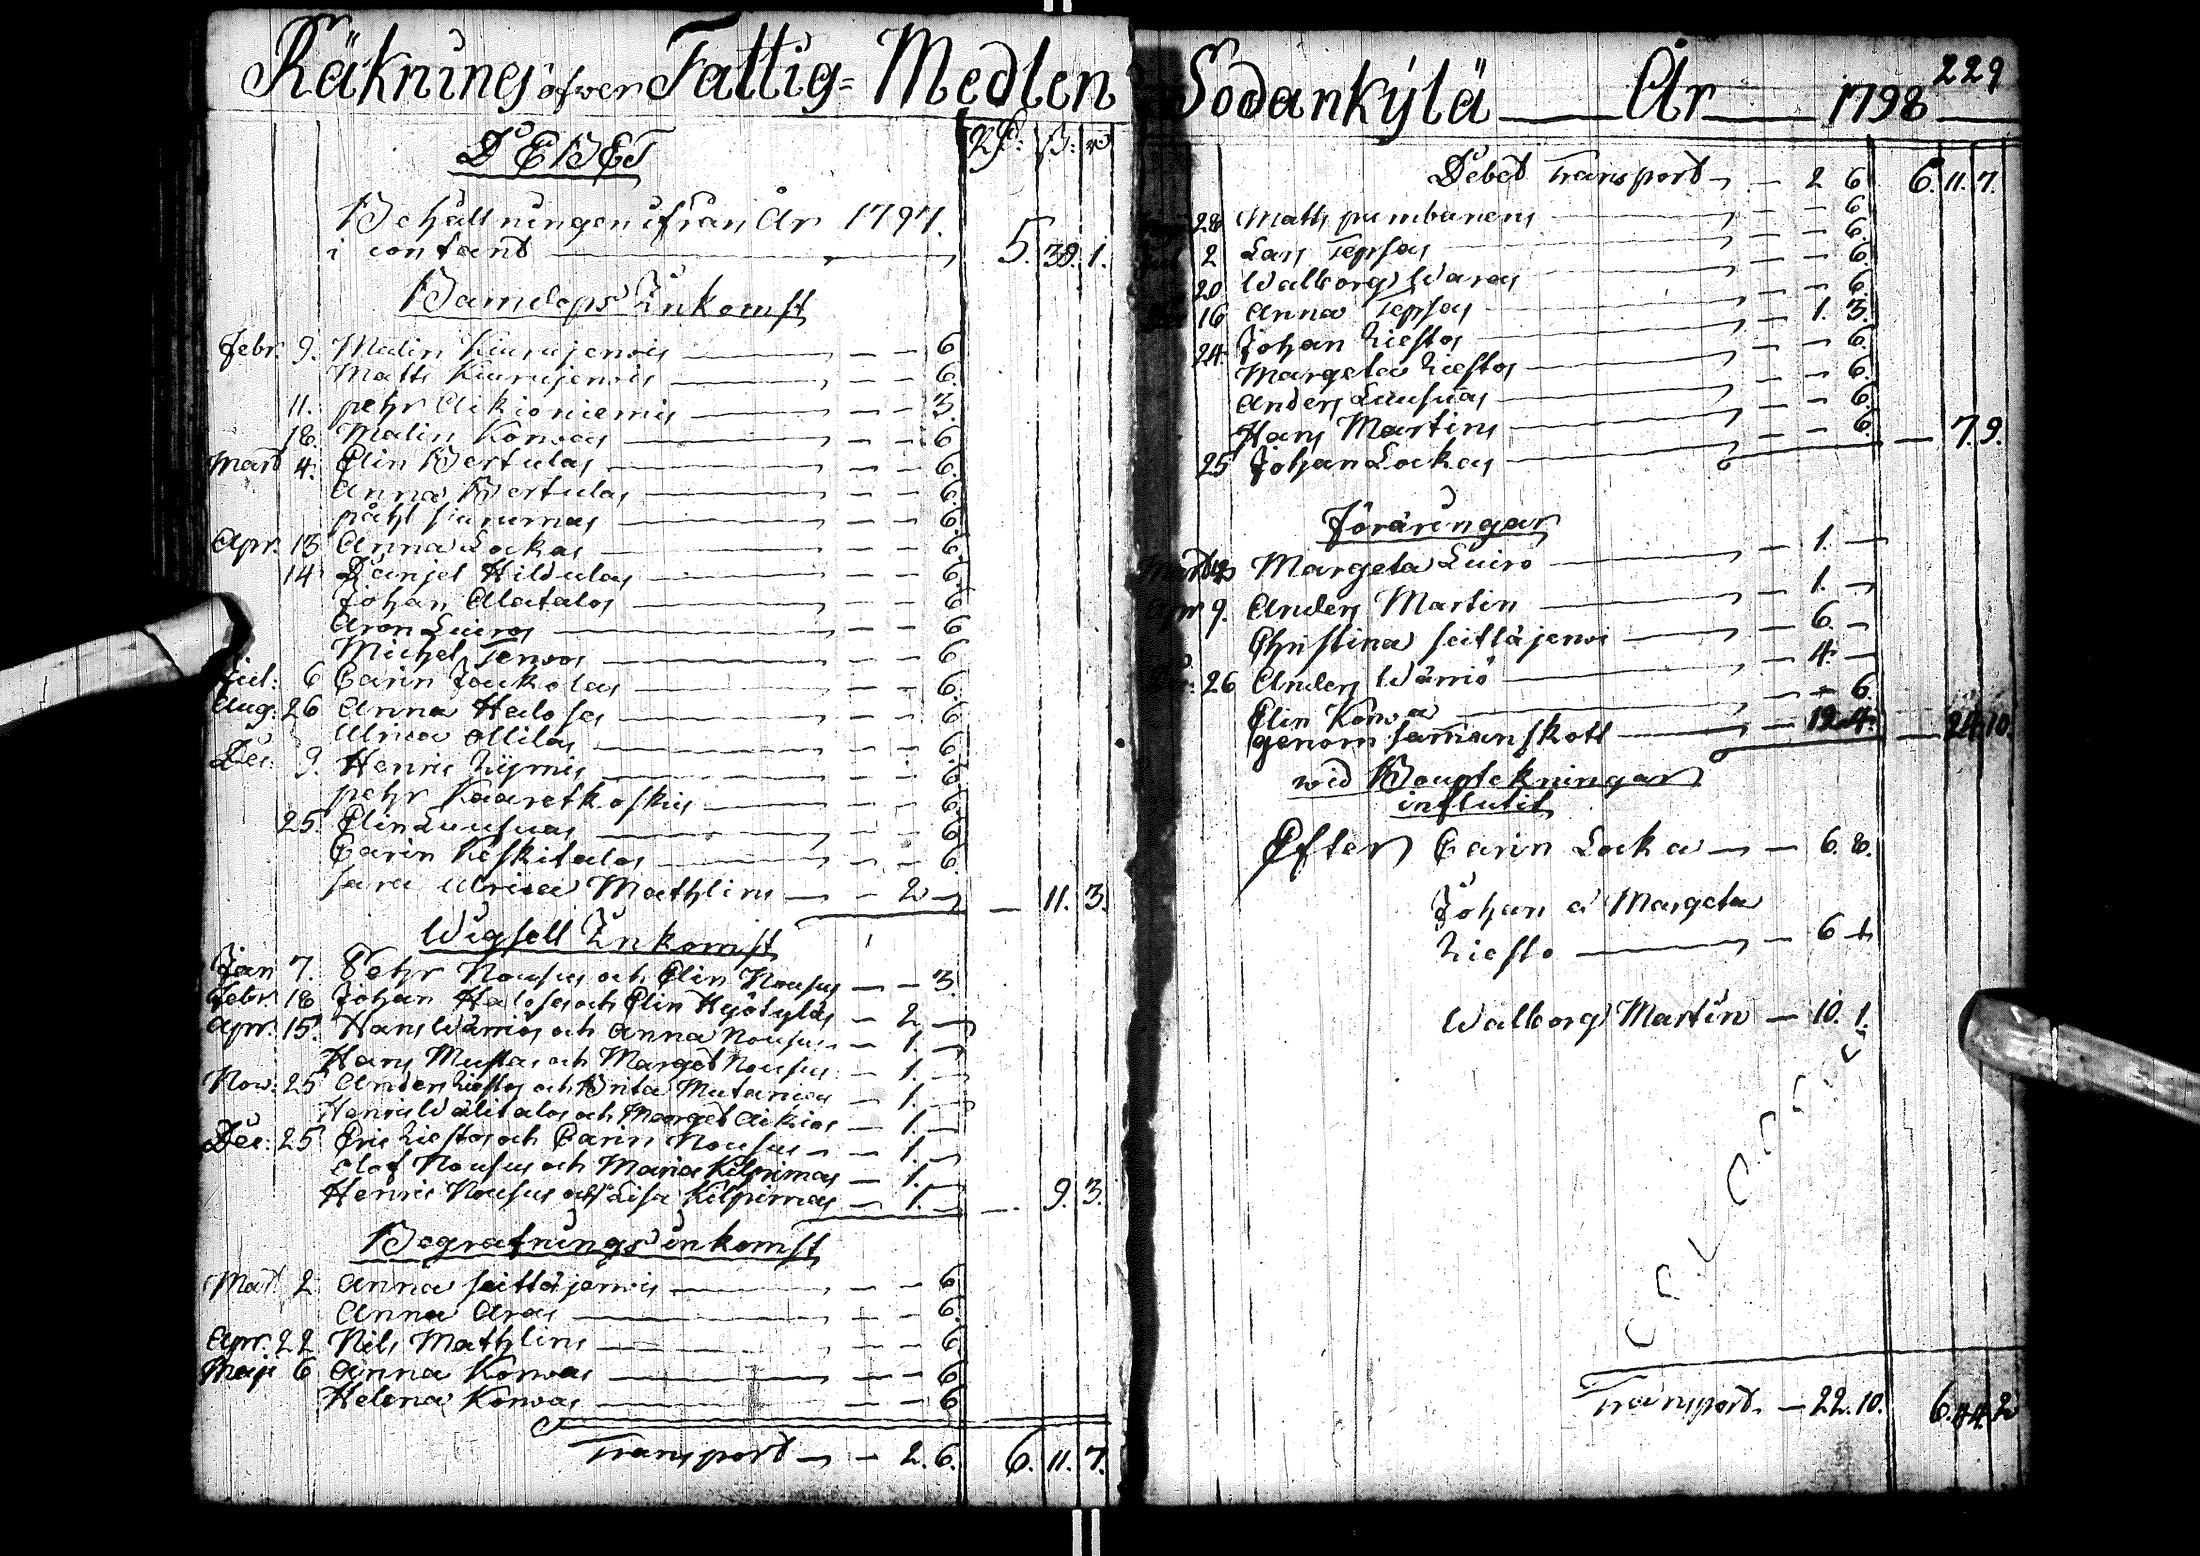 Räkning öfwer Fattig= Medlen
DEBET
Rd: ß: rst
Behållningen ifrån År 1797.
i contant 5. 39. 1.
Barndops Inkomst
Febr. 9. Malin Kiurujerwis 6
Matts Kiurujerwis 6.
11. pehr Aikioniemis 3.
18. Malin Korwas 6
Mart 4. Elin Bertulas 6.
Anna Bertulas 6.
påhl siurumas 6.
Apr. 13 Anna Lockas 6.
14 Danjel Hildulas 6.
Johan Alatalos 6
Aron Luiros 6
Michel Terwos 6
Jul: 6 Carin Joukolas 6.
Aug: 26 Anna Halosas 6
Ulrica Ollilas 6.
Dec: 9. Henric Liijmis 6
pehr Kaaretkoskis 6.
25. Elin Luusuas 6
Carin Keskitalos 6.
sara Ulrica Mathlins 2 11. 3.
Wigsell Inkomst
Jan 7. Pehr Nousus och Elin Nousus 3.
Febr. 18 Johan Halosas och Elin Hyötyläs 2
Apr. 15. Hans Wärriös och Anna Nousus 1.
Hans Mustas och Marget Nousus 1.
Now: 25 Anders Liestos och Brita Mutanias 1.
Henric Wälitalos och Marget Aikios 1.
Dec: 25. Eric Liestos och Carin Nousus 1.
Olof Nousus och Maria Kilpimas 1.
Henric Nousus och Lisa Kilpimas 1. 9. 3.
Begrafnings inkomst
Mart. 2 Anna seittäjerwis 6
Anna Aras 6
Apr. 22 Nils Mathlins 6
Maji 6 Anna Korwas 6
Helena Korwas 6
Transport 2. 6. 6. 11. 7.
Sodankylä År 1798 229
Debet Transport 2 6 6. 11. 7.
28 Matts pumbanens 6
2 Lars Tepsas 6.
20 Walborg Waras 6.
16 Anna Tepsas 6
24. Johan Liestos 1. 3.
Margeta Liestos 6.
Anders Luusuas 6.
Hans Martins 6.
25 Johan Lockas 6. 7. 9.
Föräringar
Margeta Luiro 1.
Apr 9. Anders Martin 1.
Christina seittäjerwi 6.
26 Anders Wärriö 4.
Elin Korwa 6
genom samanskott 12. 4. 24. 10.
wid Bouptekningar
influtit
Efter Carin Locka 6. 8.
Johan o Margeta
Liesto 6
Walborg Martin 10. 1.
Transport 22. 10. 6. 44. 2